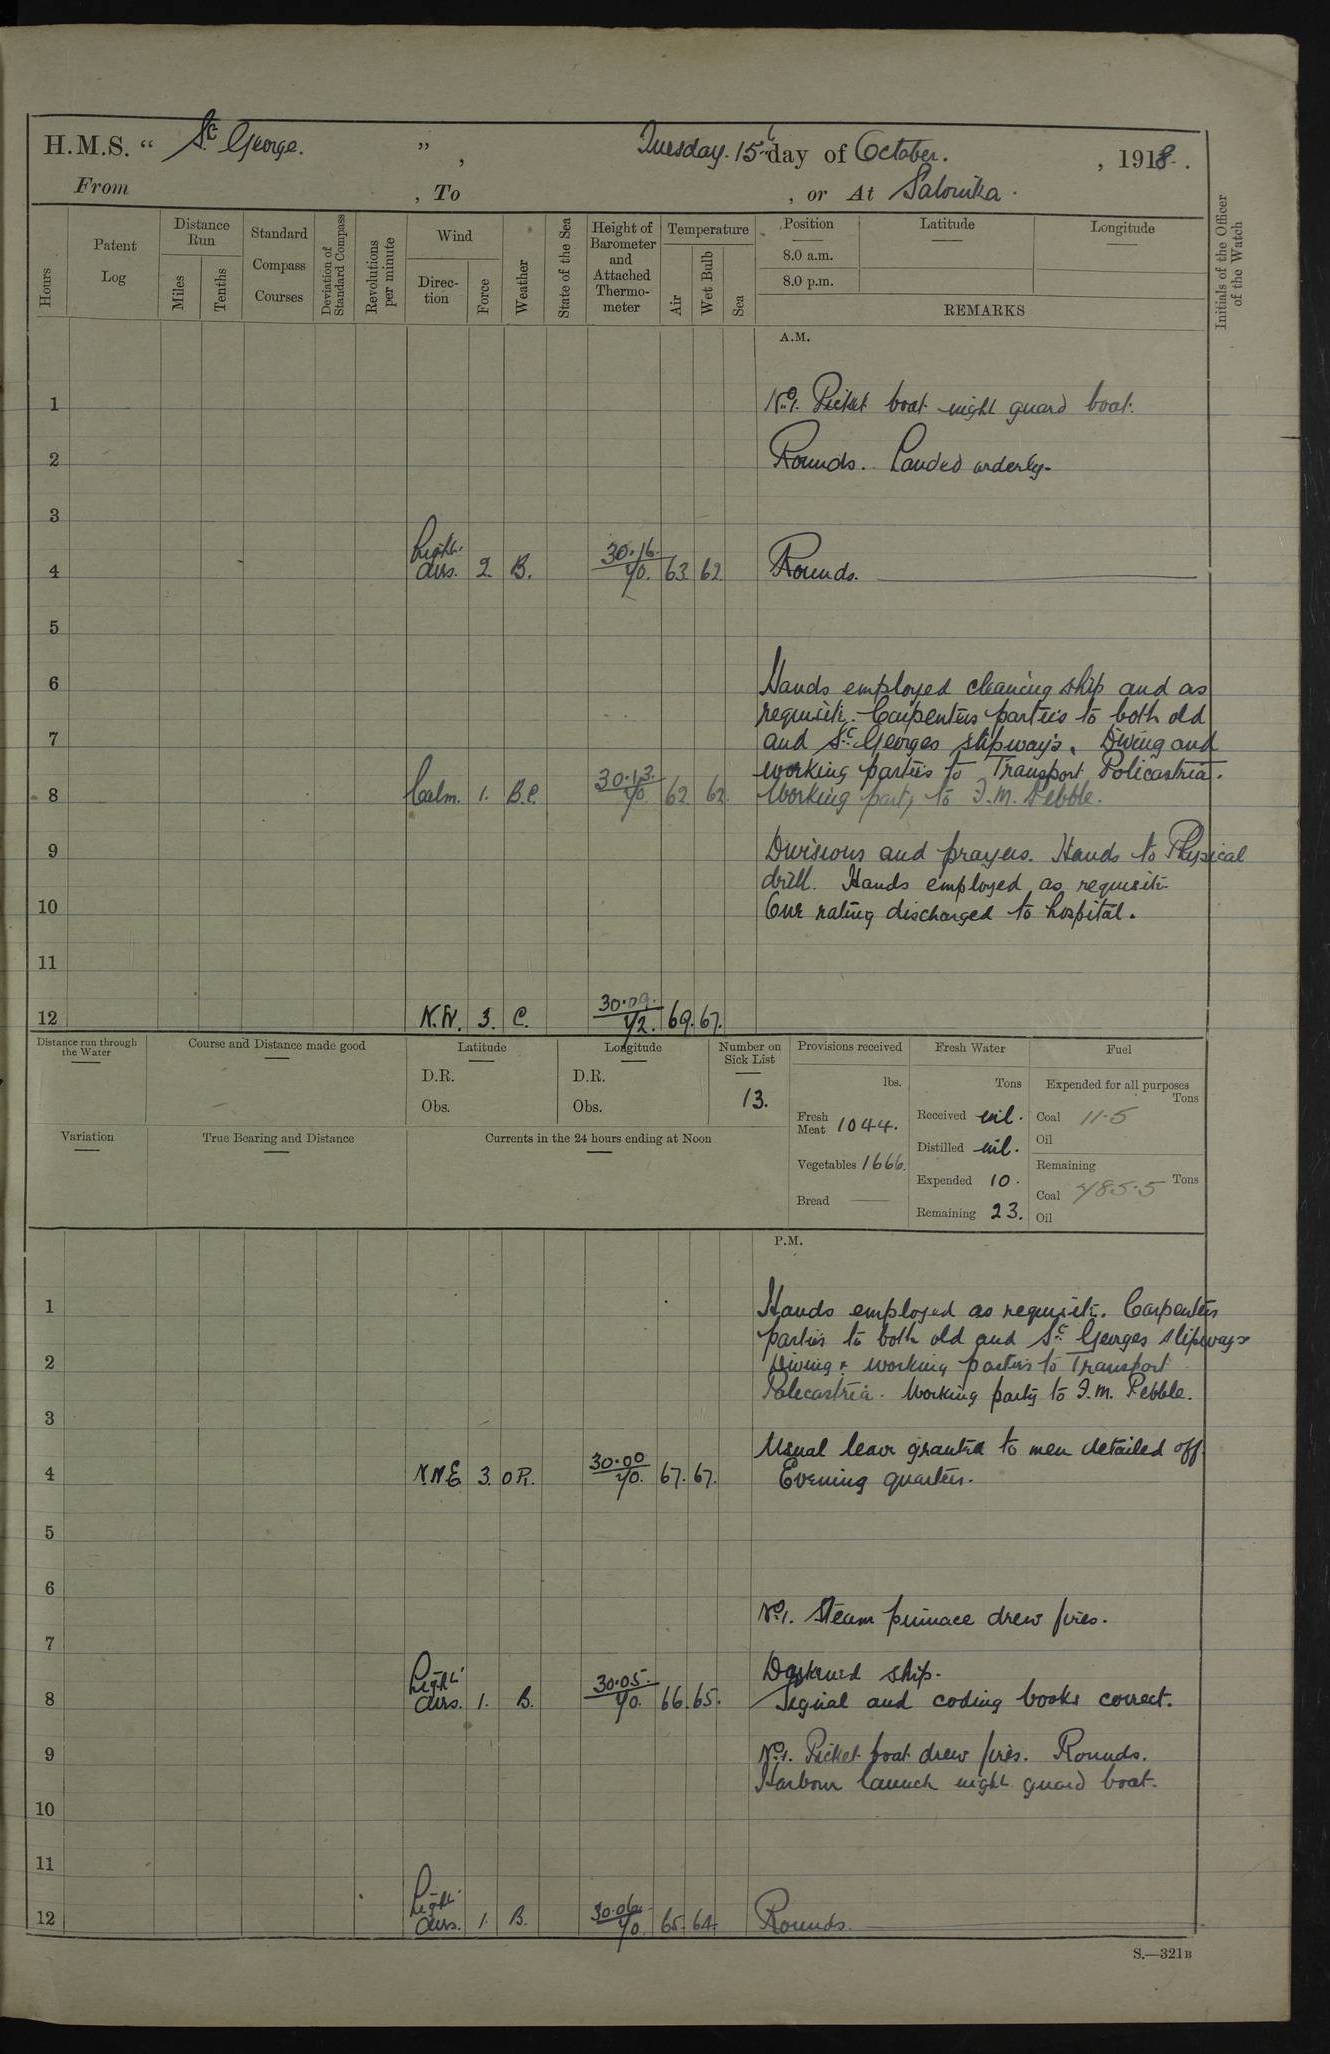 H.M.S. “ St George. ” , Tuesday. 15th day of October. , 1918.
From , To , or At Salonika.
Hours
Patent Log
Distance Run
Miles
Tenths
Standard Compass Courses
Deviation of Standard Compass
Revolutions per minute
Wind
Direction
Force
Weather
State of the Sea
Height of Barometer and Attached Thermometer
Temperature
Air
Wet Bulb
Sea
Position
8.0 a.m.
8.0 p.m.
Latitude
Longitude
REMARKS
Initials of the Officer of the Watch
A.M.
1 No1. Picket boat night guard boat.
2 Rounds. Landed orderly.
3
4 Light airs. 2. B. 30.16. 70. 63 62 Rounds.
5
6 Hands employed cleaning ship and as
requisite. Carpenters parties to both old
7 and St. Georges slipways. Diving and
working parties to Transport Policastria.
8 Calm. 1. B.C. 30.13. 70 62 62. Working party to F.M. Pebble.
9 Divisions and prayers. Hands to Physical
drill. Hands employed as requisite
10 One rating discharged to hospital.
11
12 N.W. 3. C. 30.09. 72. 69. 67.
Distance run through the Water
Course and Distance made good
Latitude
D.R.
Obs.
Longitude
D.R.
Obs.
Number on Sick List
13.
Provisions received
lbs.
Fresh Meat 1044.
Vegetables 1666.
Bread
Fresh Water
Tons
Received nil.
Distilled nil.
Expended 10.
Remaining 23.
Fuel
Expended for all purposes
Tons
Coal 11.5
Oil
Remaining
Coal 485.5 Tons
Oil
Variation
True Bearing and Distance
Currents in the 24 hours ending at Noon
P.M.
1 Hands employed as requisite. Carpenters
parties to both old and St. Georges slipways
2 Diving & working parties to Transport
Policastria. Working party to F.M. Pebble.
3
Usual leave granted to men detailed off
4 N.N.E 3. O R. 30.00 70. 67. 67. Evening quarters.
5
6
No1. Steam pinnace drew fires.
7
Darkened ship.
8 Light airs. 1. B. 30.05. 70. 66. 65. Signal and coding books correct.
9 No1. Picket boat drew fires. Rounds.
Harbour launch night guard boat.
10
11
12 Light airs. 1. B. 30.06. 70. 65. 64. Rounds.
S.—321B